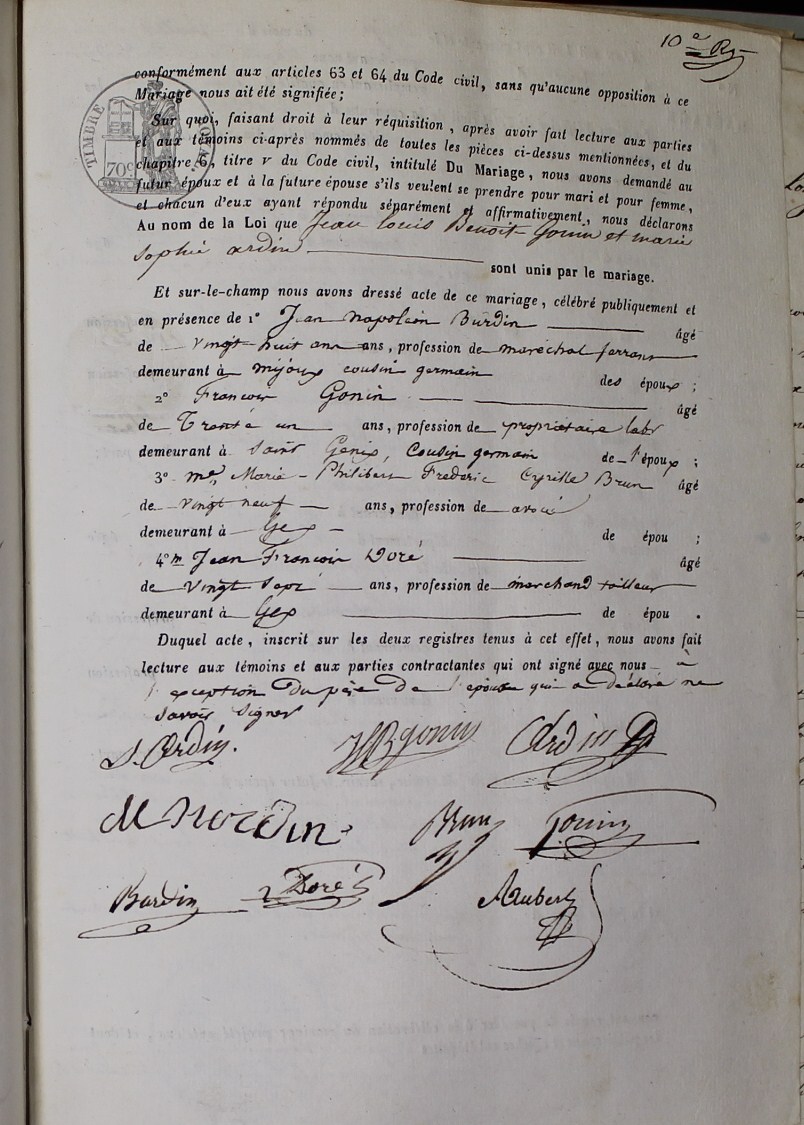 10e Rg
conformément aux articles 63 et 64 du Code civil, sans qu'aucune opposition à ce
Mariage nous ait été signifiée;
Sur quoi, faisant droit à leur réquisition, après avoir fait lecture aux parties
et aux témoins ci-après nommés de toutes les pièces ci-dessus mentionnées, et du
chapitre 6, titre v du Code civil, intitulé Du Mariage, nous avons demandé au
futur époux et à la future épouse s'ils veulent se prendre pour mari et pour femme,
et chacun d'eux ayant répondu séparément et affirmativement, nous déclarons
Au nom de la Loi que Jean Louis Benoit Gonin et marie
Sophie ardin sont unis par le mariage.
Et sur-le-champ nous avons dressé acte de ce mariage, célébré publiquement et
en présence de 1° Jean Napoléon Burdin âgé
de vingt huit ans ans, profession de maréchal ferrant
demeurant à mijoux cousin germain des époux;
2° Francois Gonin âgé
de Trente un ans, profession de propriétaire labr
demeurant à Saint Genix, Cousin germain de l'époux;
3° mr Marie-Philibert Frederic Cyrille Brun âgé
de vingt neuf ans, profession de avoué
demeurant à Gex de épou ;
4° m Jean Francois Doré âgé
de vingt sept ans, profession de marchand tailleur
demeurant à Gex de épou .
Duquel acte, inscrit sur les deux registres tenus à cet effet, nous avons fait
lecture aux témoins et aux parties contractantes qui ont signé avec nous à
l'exception du père de l'épouse qui a déclaré ne
savoir signer
S. Ardin. JLB gonin Ardin
Brun Gonin
Burdin Doré Aubert
TIMBRE
70c